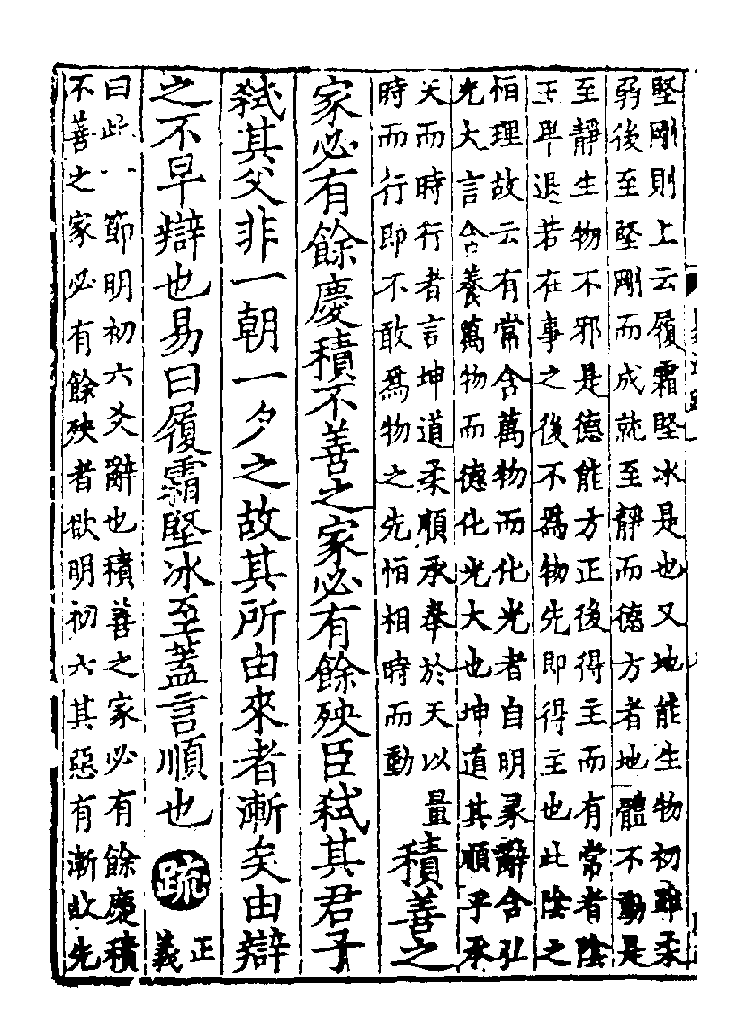 堅剛則上云履霜堅冰是也又地能生物初雖柔
弱後至堅剛而成就至靜而德方者地體不動是
至靜生物不邪是德能方正後得主而有常者陰
主卑退若在事之後不為物先即得主也此陰之
恒理故云有常含萬物而化光者自明彖辭含弘
光大言含養萬物而德化光大也坤道其順乎承
天而時行者言坤道柔順承奉於天以量
時而行即不敢為物之先恒相時而動
積善之
家必有餘慶積不善之家必有餘殃臣弒其君子
弒其父非一朝一夕之故其所由來者漸矣由辯
之不早辯也易曰履霜堅冰至蓋言順也 疏 正
義
曰此一節明初六爻辭也積善之家必有餘慶積
不善之家必有餘殃者欲明初六其惡有漸故先